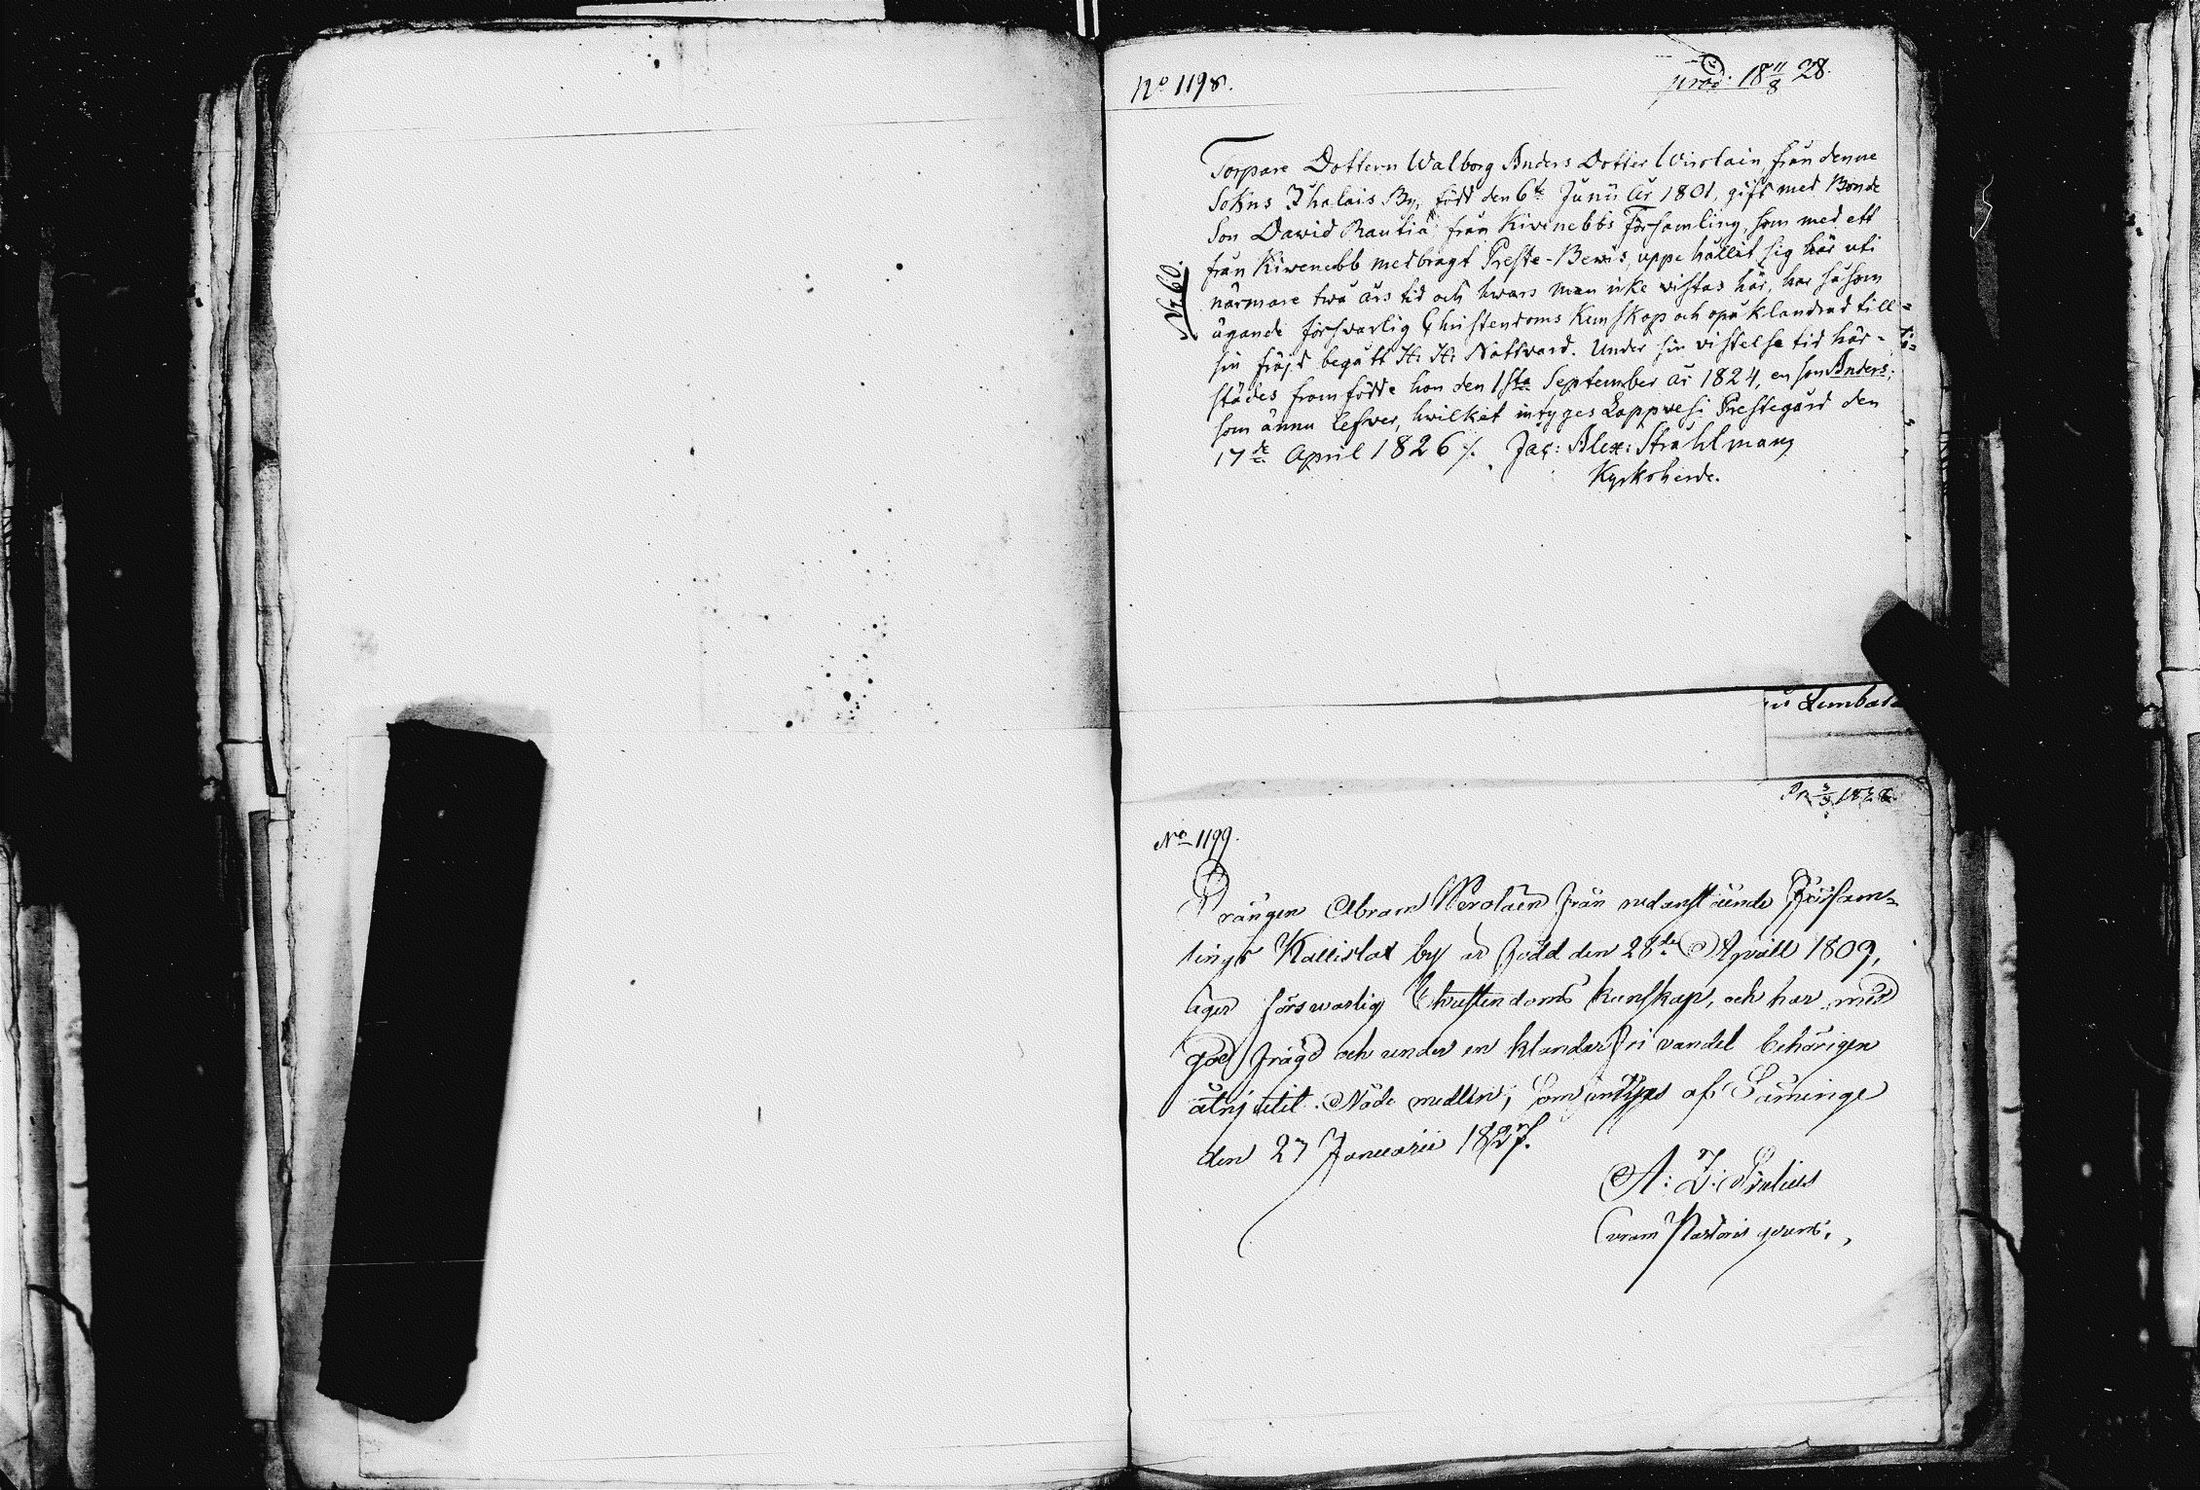 No 1198.
prod: 18 11/8 28.
No 60.
Torpare Dottern Walborg Anders Dotter Wirolain från denne
Sokns Ihalais By, född den 6te Junii år 1801, gift med Bonde
Son Dawid Rautia från Kivinebbs Församling, som med ett
från Kivenebb medbragt Preste-Bewis, uppe hållit sig här uti
närmare twå års tid och hwars man icke vistas här, har såsom
ägande försvarlig Christendoms Kunskap och opåklandrad till
sin fräjd begått H. H. Nattvard. Under sin vistelse tid här-
städes framfödde hon den 1sta September år 1824, en son Anders;
som ännu lefwer, hvilket intyges Lappvesi Prestegård den
17de April 1826 ⁒. Jac: Alex: Strahlmann
Kyrkoherde.
No 1199.
Drängen Abram Werolain från nedanstående Församlings
Kallislax by är född den 28de Aprill 1809,
äger försvarlig Christendoms kunskap, och har med
god frägd och under en klanderfri vandel behörigen
åtnjutit Nåde medlen, som intyges af Säminge
den 27 Januarii 1827.